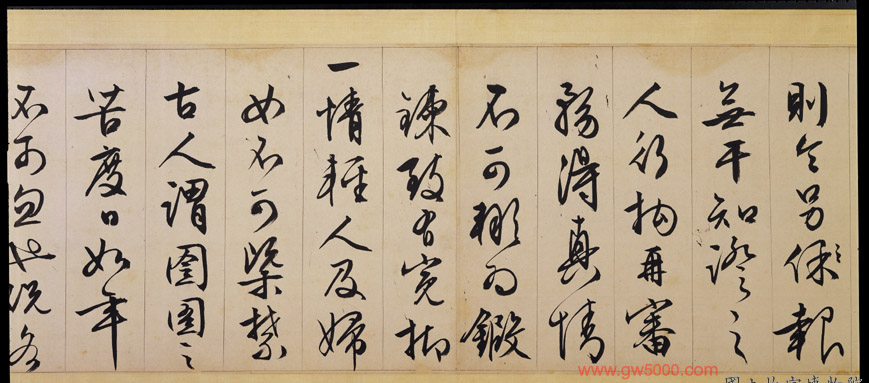 則令另保報
無干知證之
人行拘再審
務得真情
不可輒為鍛
鍊致有冤抑
一情輕人及婦
女不可槩禁
古人謂囹圄之
苦度日如年
不可忽也況各
www.gw5000.com